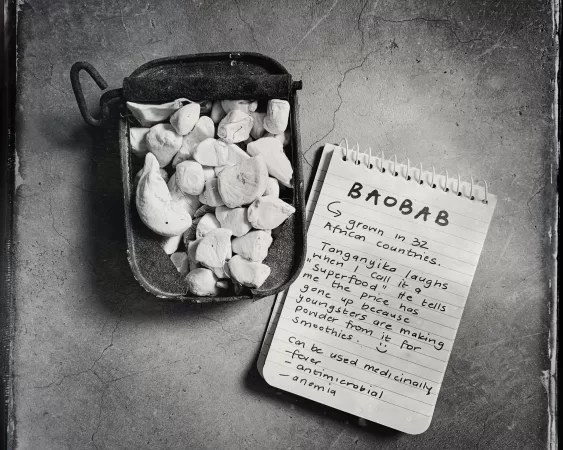 BAOBAB
↳ grown in 32
African countries.
Tanganyika laughs
"when I call it a
"Superfood" He tells
me the price has
gone up because
youngsters are making
powder from it for
smoothies. :)
can be used medicinally
-fever
- antimicrobial
- anemia